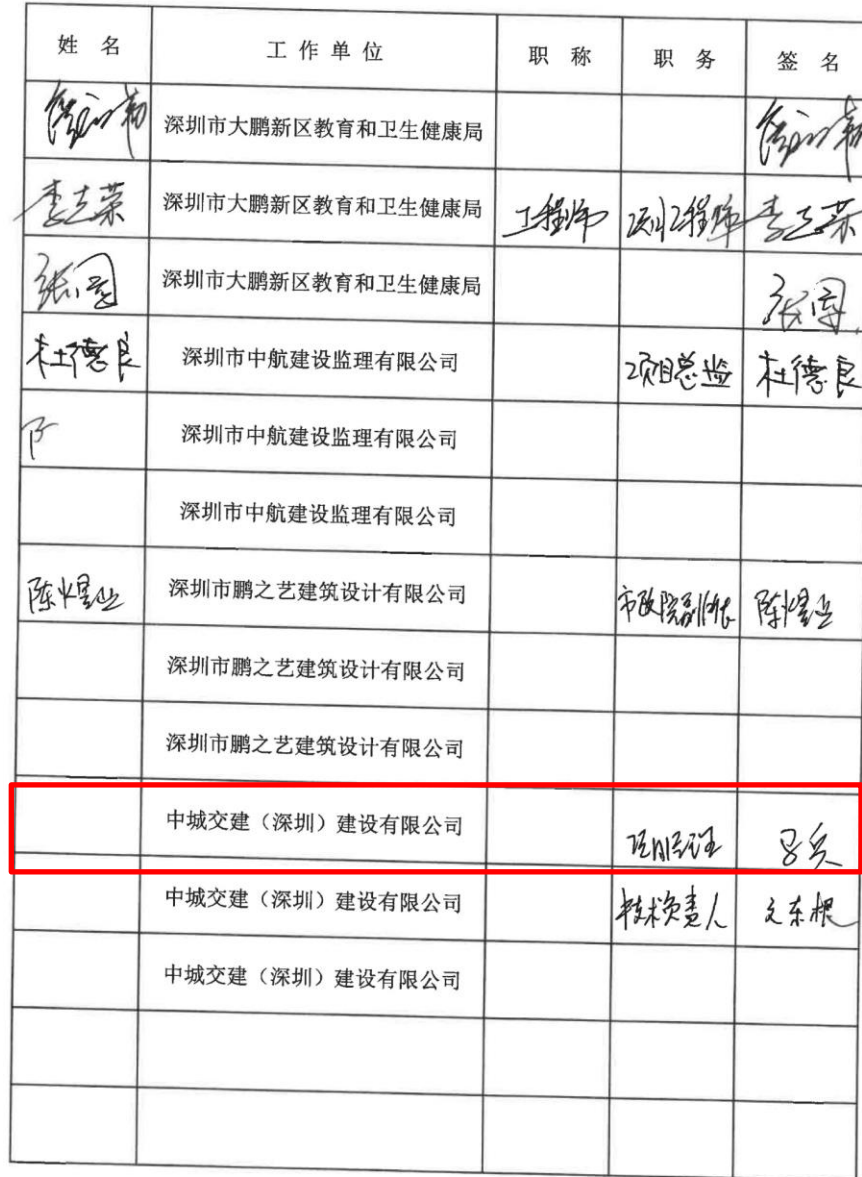 姓 名 工 作 单 位 职 称 职 务 签 名
深圳市大鹏新区教育和卫生健康局
李志荣 深圳市大鹏新区教育和卫生健康局 工程师 李志荣
深圳市大鹏新区教育和卫生健康局
杜德良 深圳市中航建设监理有限公司 项目总监 杜德良
深圳市中航建设监理有限公司
深圳市中航建设监理有限公司
陈煜业 深圳市鹏之艺建筑设计有限公司 市政院副院长 陈煜业
深圳市鹏之艺建筑设计有限公司
深圳市鹏之艺建筑设计有限公司
中城交建（深圳）建设有限公司 项目经理
中城交建（深圳）建设有限公司 技术负责人 文东根
中城交建（深圳）建设有限公司